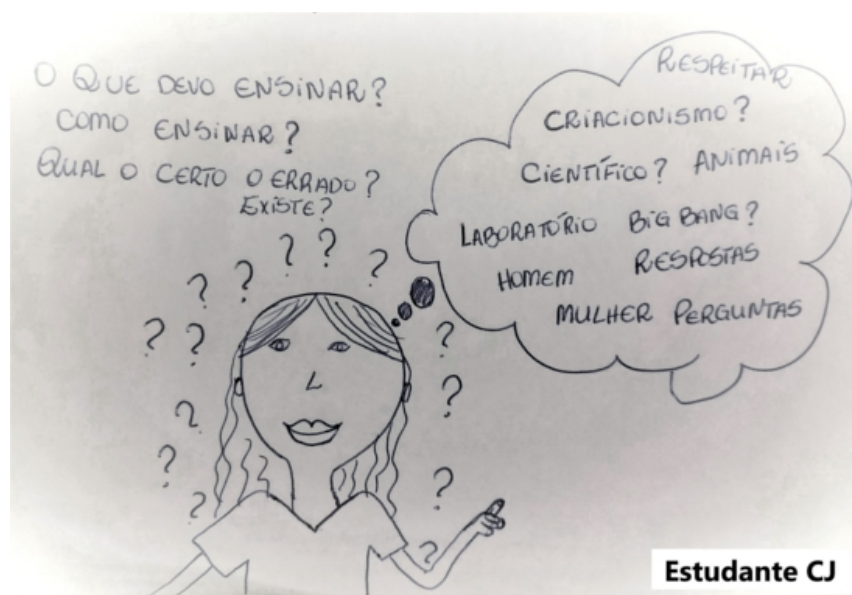 O QUE DEVO ENSINAR?
COMO ENSINAR?
QUAL O CERTO O ERRADO?
EXISTE?
? ? ? ? ? ? ? ? ? ? ? ? ? ? ? ?
RESPEITAR
CRIACIONISMO?
CIENTÍFICO? ANIMAIS
LABORATÓRIO BIG BANG?
HOMEM RESPOSTAS
MULHER PERGUNTAS
Estudante CJ